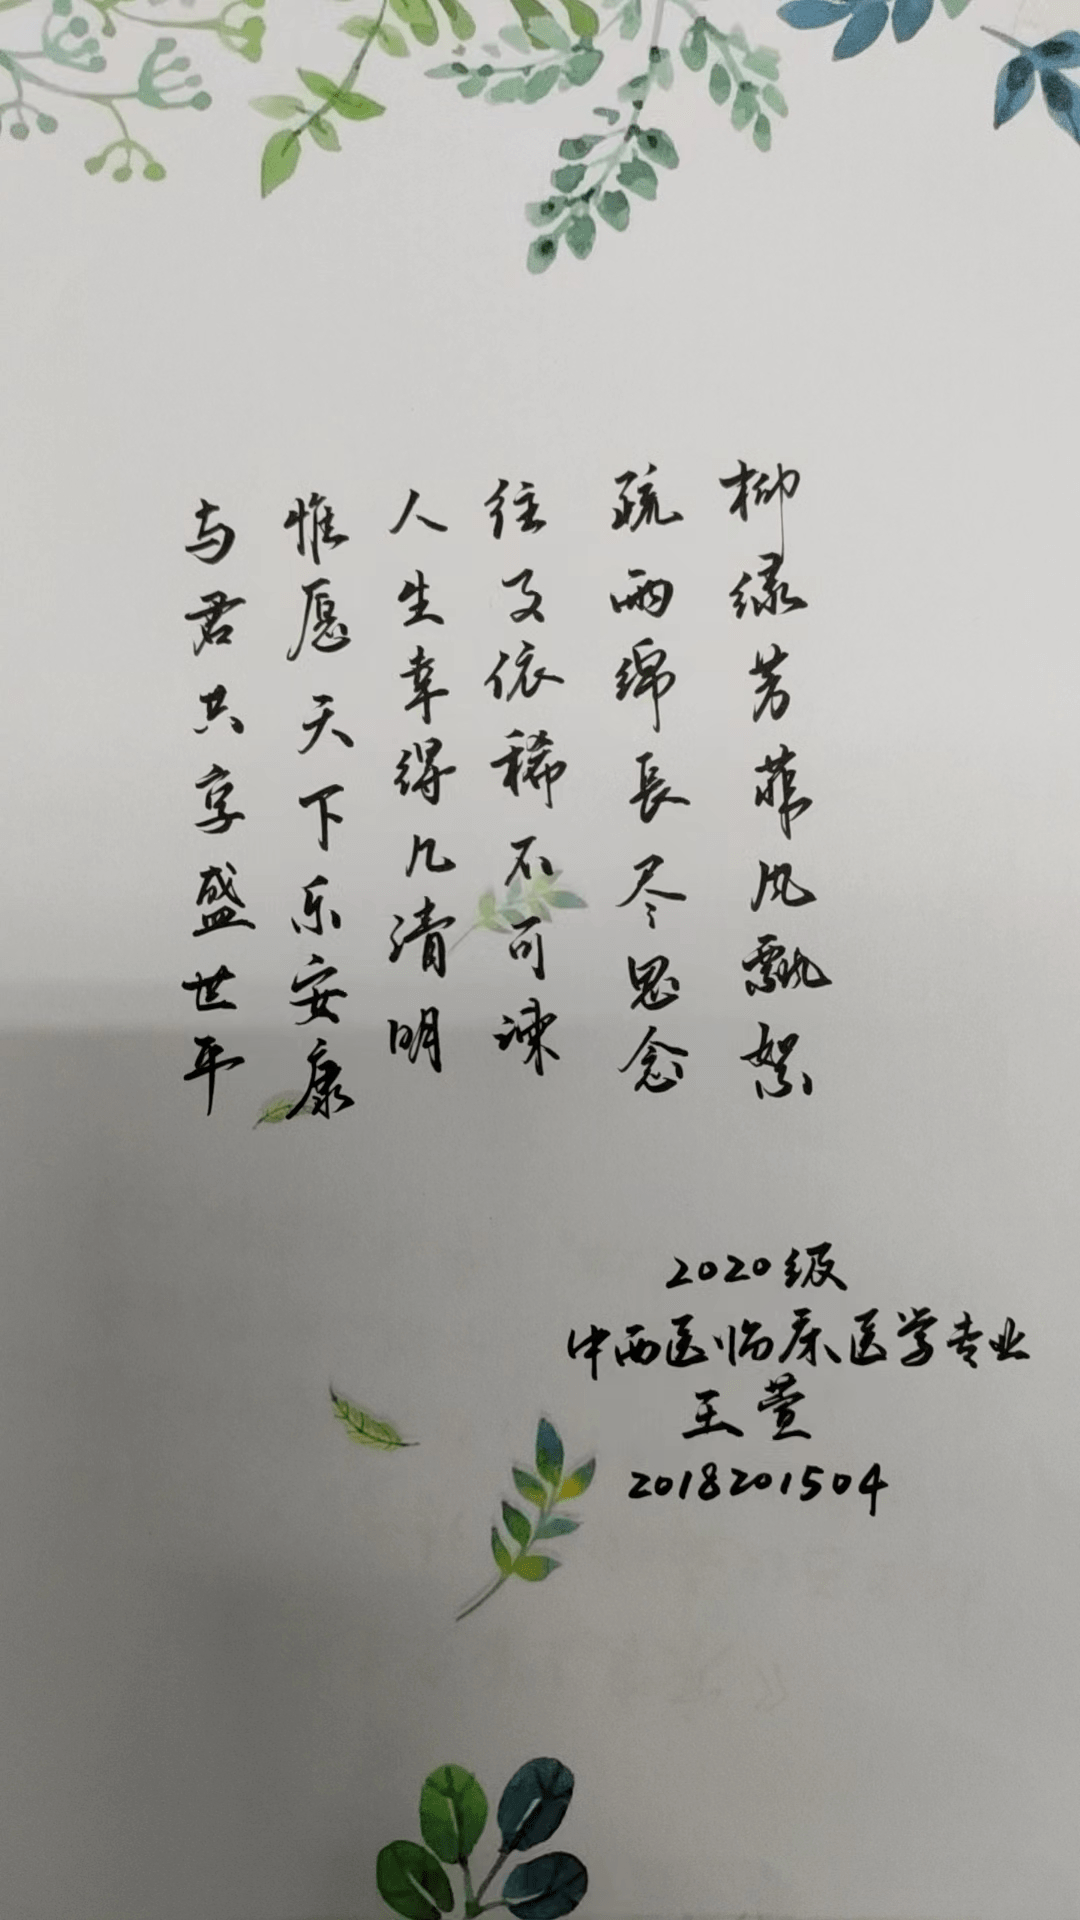 柳绿芳菲风飘絮
疏雨绵长尽思念
往及依稀不可谏
人生幸得几清明
惟愿天下乐安康
与君共享盛世平
2020级
中西医临床医学专业
王萱
2018201504